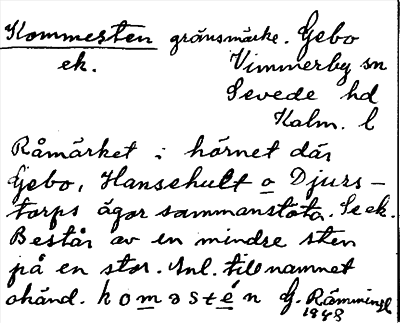 Kommesten gränsmärke. Gebo
ek. Vimmerby sn
Sevede hd
Kalm. l
Råmärket i hörnet där
Gebo, Hansehult o Djurs-
torps ägor sammanstöta. Se ek.
Består av en mindre sten
på en stor. Anl. till namnet
okänd. komǝstén G. Rämmingl
1948